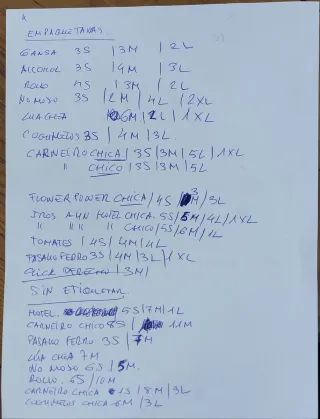 EMPAQUETADAS.
GANSA 3S | 3M | 2L
ALCOHOL 3S | 4M | 3L
ROLLO 4S | 3M | 2L
NO MOSO 3S | 2M | 4L | 2XL
6M | 2L | 1XL
COGOMELOS 3S | 4M | 3L.
CARNEIRO CHICA | 3S | 3M | 5L | 1XL
" CHICO | 3S | 3M | 5L
FLOWER POWER CHICA | 4S | 3M | 3L
HOTEL CHICA. 5S | 5M | 4L | 1XL
" " " CHICO | 5S | 6M | 1L
TOMATES | 4S | 4M | 4L
PASADO FERRO 3S | 4M | 3L | 1XL
CLICK DERECHO | 3M |
SIN ETIQUETAR
HOTEL. 5S | 7M | 1L
CARNEIRO CHICO 8S | 11M
PASADO FERRO 3S | 7M
7M
NO MOSO 6S | 5M.
ROLLO. 6S | 10M
CARNEIRO CHICA 1S | 8M | 3L
COGOMELOS CHICA 6M | 3L